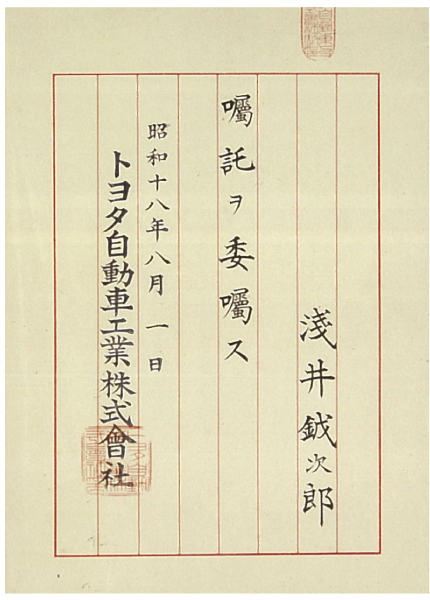 淺井鉞次郎
囑託ヲ委囑ス
昭和十八年八月一日
トヨタ自動車工業株式會社